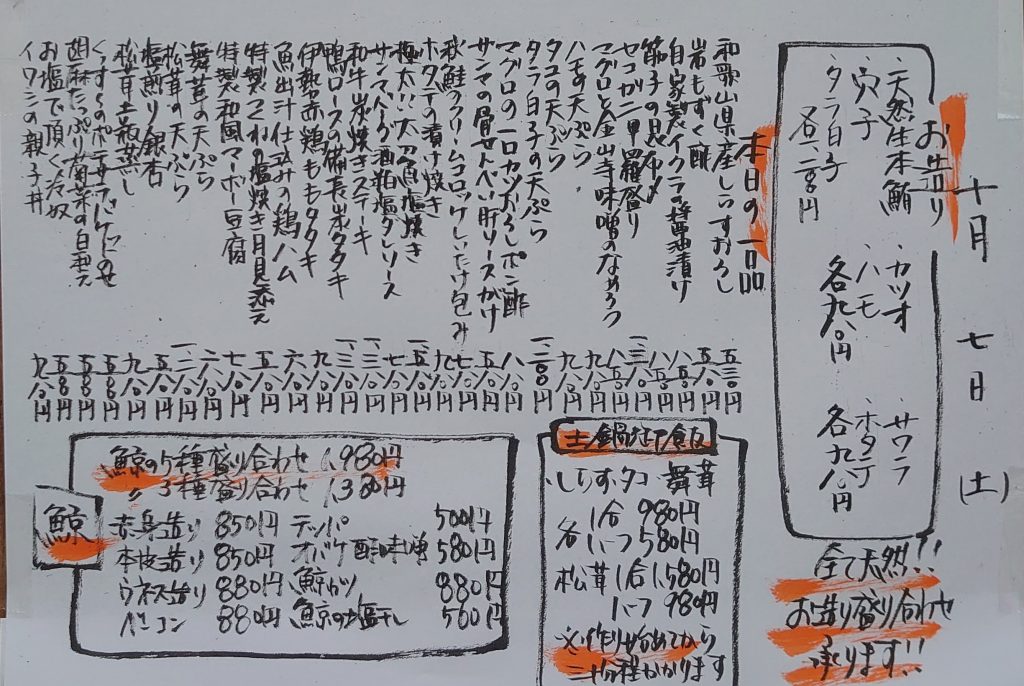 十月七日(土)
お造り
・天然生本鮪
・穴子
・タラ白子
各一、二〇〇円
・カツオ
・ハモ
各九八〇円
・サワラ
・ホタテ
各九八〇円
全て天然!!
お造り盛り合わせ
承ります!!
本日の一品
和歌山県産しらすおろし 五三〇円
岩もずく酢 五八〇円
自家製イクラの醤油漬け
筋子の昆布〆
セコガニ甲羅盛り
マグロと金山寺味噌のなめろう
ハモの天ぷら 九八〇円
タコの天ぷら 九八〇円
タラ白子の天ぷら 一、二〇〇円
マグロの一口カツおろしポン酢 八八〇円
サンマの骨せんべい肝ソースがけ 五八〇円
秋鮭クリームコロッケしいたけ包み
ホタテの漬け焼き
極太!!太刀魚塩焼き
サンマハンバーグ酒粕塩ダレソース
和牛炭焼きステーキ
鴨ロースの備長炭タタキ
伊勢赤鶏ももタタキ
魚出汁仕込みの鶏ハム
特製つくねの塩焼き月見添え
特製和風マーボー豆腐
舞茸の天ぷら
松茸の天ぷら
塩煎り銀杏
松茸土瓶蒸し
胡麻たっぷり菊菜の白和え
お塩で頂く冷奴
イワシの親子丼 九八〇円
土鍋炊き飯
・しらす・タコ・舞茸
各 1合 980円
ハーフ 580円
松茸 1合 1,580円
ハーフ 980円
※作り始めてから
二十分程かかります
鯨
鯨の5種盛り合わせ 1,980円
〃 3種盛り合わせ 1,380円
赤身造り 850円
本皮造り 850円
ウネス造り 880円
ベーコン 880円
テッパ 500円
オバケ酢味噌 580円
鯨カツ 880円
鯨の塩干し 560円